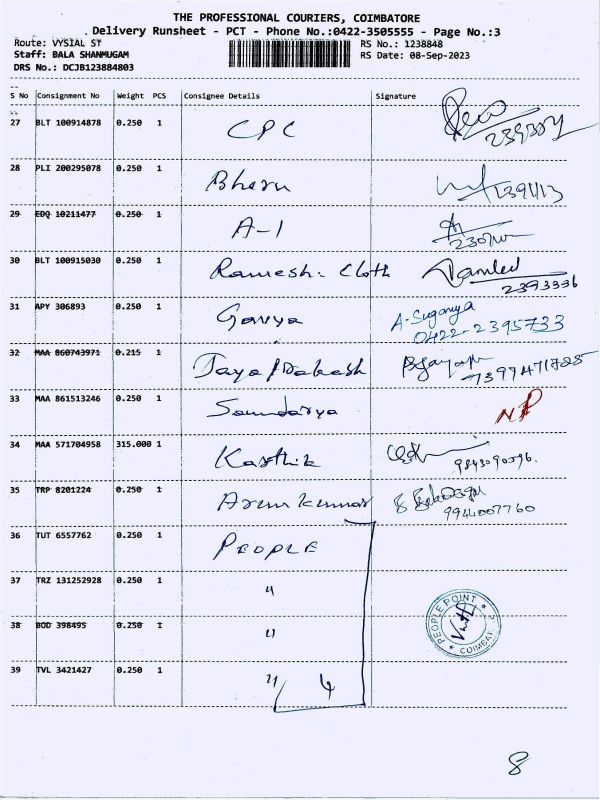 THE PROFESSIONAL COURIERS, COIMBATORE
Delivery Runsheet - PCT - Phone No.:0422-3505555 - Page No.:3
Route: VYSIAL ST RS No.: 1238848
Staff: BALA SHANMUGAM RS Date: 08-Sep-2023
DRS No.: DCJB123884803
S No Consignment No Weight PCS Consignee Details Signature
27 BLT 100914878 0.250 1 CPC
28 PLI 200295078 0.250 1 Bheru
29 EDQ 10211477 0.250 1 A-1
30 BLT 100915030 0.250 1 Ramesh Cloth 2393336
31 APY 306893 0.250 1 Gavya A-Suganya
0422-2395733
32 MAA 860743971 0.215 1 Jaya Prakash
33 MAA 861513246 0.250 1 Soundarya NP
34 MAA 571704958 315.000 1 Karthik 9843090596.
35 TRP 8201224 0.250 1 Arun kumar 9944007760
36 TUT 6557762 0.250 1 PEOPLE
37 TRZ 131252928 0.250 1 "
38 BOD 398495 0.250 1 "
PEOPLE POINT
COIMBAT
39 TVL 3421427 0.250 1 " 4
8